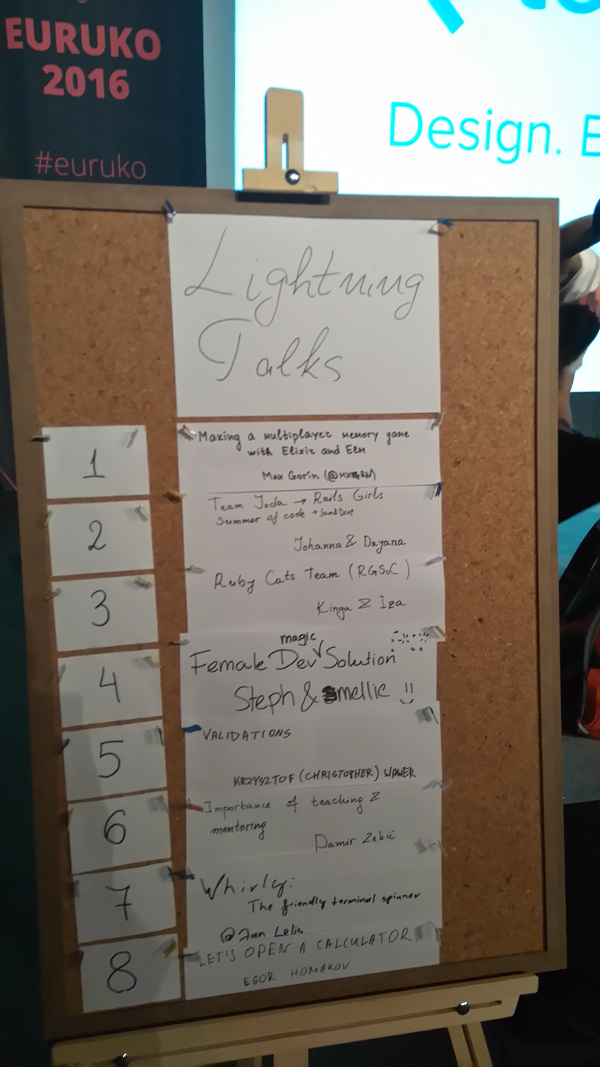 EURUKO
2016
#euruko
Design.
Lightning
Talks
1
Making a multiplayer memory game
with Elixir and Elm
Max Gorin
2
Team Joda → Rails Girls
Summer of code →
Johanna & Dayana
3
Ruby Cats Team (RGSoC)
Kinga & Iza
4
magic
Female Dev Solution
Steph & mellie !!
5
VALIDATIONS
KRZYSZTOF (CHRISTOPHER) WAWER
6
Importance of teaching &
mentoring
Damir Zekić
7
Whirly:
The friendly terminal spinner
@Jan Lelis
8
LET'S OPEN A CALCULATOR
EGOR HOMAKOV